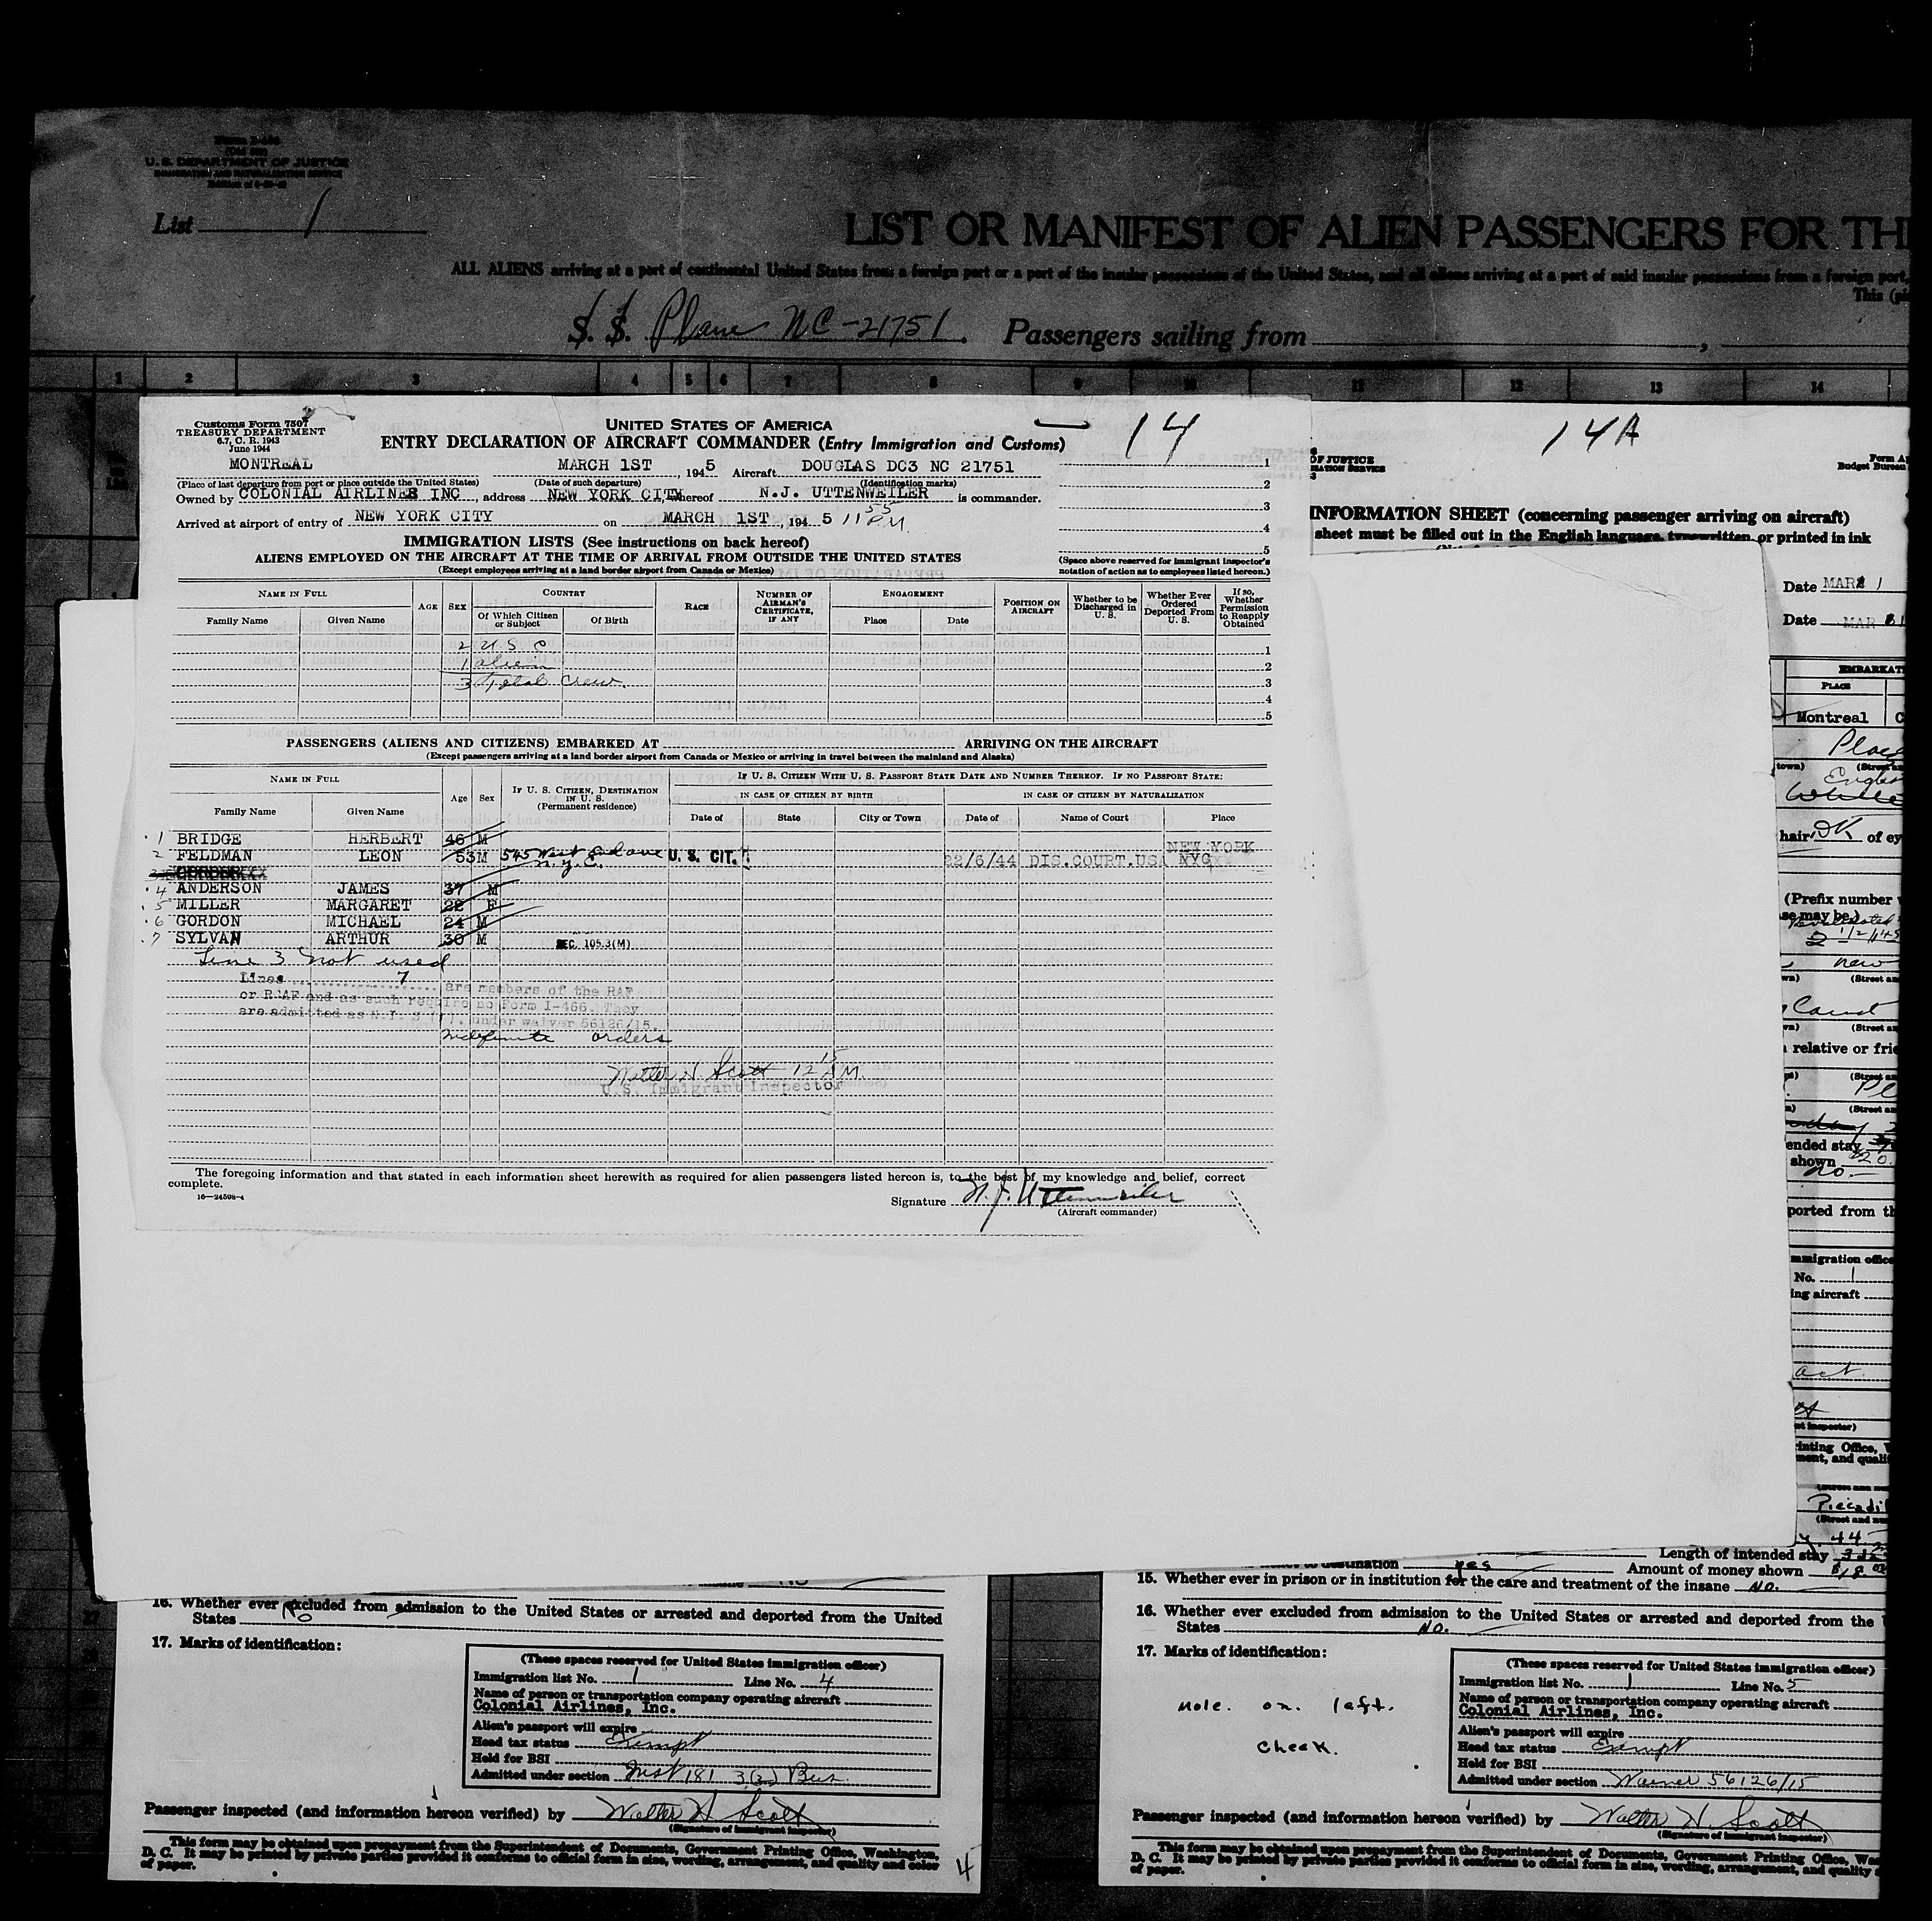 U. S. DEPARTMENT OF JUSTICE
IMMIGRATION AND NATURALIZATION SERVICE
List 1
LIST OR MANIFEST OF ALIEN PASSENGERS FOR TH
ALL ALIENS arriving at a port of continental United States from a foreign port or a port of the insular possessions of the United States, and all aliens arriving at a port of said insular possessions from a foreign port,
S. S. Plane NC-21751. Passengers sailing from
1 2 3 4 5 6 7 8 9 10 11 12 13 14
Customs Form 7507
TREASURY DEPARTMENT
6.7, C. R. 1943
June 1944
UNITED STATES OF AMERICA
ENTRY DECLARATION OF AIRCRAFT COMMANDER (Entry Immigration and Customs)
14
MONTREAL MARCH 1ST, 1945 Aircraft DOUGLAS DC3 NC 21751
(Place of last departure from port or place outside the United States) (Date of such departure) (Identification marks)
Owned by COLONIAL AIRLINES INC, address NEW YORK CITY whereof N.J. UTTENWEILER is commander.
Arrived at airport of entry of NEW YORK CITY on MARCH 1ST, 1945 11 55 P.M.
1
2
3
4
5
(Space above reserved for immigrant inspector's notation of action as to employees listed hereon.)
IMMIGRATION LISTS (See instructions on back hereof)
ALIENS EMPLOYED ON THE AIRCRAFT AT THE TIME OF ARRIVAL FROM OUTSIDE THE UNITED STATES
(Except employees arriving at a land border airport from Canada or Mexico)
NAME IN FULL AGE SEX COUNTRY RACE NUMBER OF AIRMAN'S CERTIFICATE, IF ANY ENGAGEMENT POSITION ON AIRCRAFT Whether to be Discharged in U. S. Whether Ever Ordered Deported From U. S. If so, Whether Permission to Reapply Obtained
Family Name Given Name Of Which Citizen or Subject Of Birth Place Date
2 U S C 1
1 alien 2
3 Total crew. 3
4
5
PASSENGERS (ALIENS AND CITIZENS) EMBARKED AT ARRIVING ON THE AIRCRAFT
(Except passengers arriving at a land border airport from Canada or Mexico or arriving in travel between the mainland and Alaska)
NAME IN FULL Age Sex IF U. S. CITIZEN, DESTINATION IN U. S. (Permanent residence) IF U. S. CITIZEN WITH U. S. PASSPORT STATE DATE AND NUMBER THEREOF. IF NO PASSPORT STATE:
IN CASE OF CITIZEN BY BIRTH IN CASE OF CITIZEN BY NATURALIZATION
Family Name Given Name Date of State City or Town Date of Name of Court Place
1 BRIDGE HERBERT 46 M
2 FELDMAN LEON 53 M 545 West End ave N.Y.C. U. S. CIT. 22/6/44 DIS.COURT.USA NEW YORK NYC
4 ANDERSON JAMES 37 M
5 MILLER MARGARET 22 F
6 GORDON MICHAEL 24 M
7 SYLVAN ARTHUR 30 M SEC. 105.3(M)
Line 3 not used
Lines 7 are members of the RAF
or RCAF and as such require no Form I-466. They
are admitted as N.I. 3 (1), under waiver 56126/15.
Indefinite orders
Walter H. Scott 12 15 A.M.
U.S. Immigrant Inspector
The foregoing information and that stated in each information sheet herewith as required for alien passengers listed hereon is, to the best of my knowledge and belief, correct
complete.
16—24598-4
Signature N. J. Uttenweiler
(Aircraft commander)
14A
OF JUSTICE
Form A
Budget Bureau
INFORMATION SHEET (concerning passenger arriving on aircraft)
sheet must be filled out in the English language, typewritten, or printed in ink
Date MAR 1
Date MAR 1
EMBARKAT
PLACE
Montreal
hair DK of ey
(Prefix number
relative or frie
ended stay
shown 20.
no.
ported from th
mmigration office
No. 1
ing aircraft
Piccadil
Length of intended stay
yes Amount of money shown
15. Whether ever in prison or in institution for the care and treatment of the insane No.
16. Whether ever excluded from admission to the United States or arrested and deported from the
States No.
17. Marks of identification:
Mole. on. left.
Cheek.
(These spaces reserved for United States immigration officer)
Immigration list No. 1 Line No. 5
Name of person or transportation company operating aircraft
Colonial Airlines, Inc.
Alien's passport will expire
Head tax status Exempt
Held for BSI
Admitted under section Waiver 56126/15
Passenger inspected (and information hereon verified) by Walter H. Scott
(Signature of immigrant inspector)
This form may be obtained upon prepayment from the Superintendent of Documents, Government Printing Office, Was
D. C. It may be printed by private parties provided it conforms to official form in size, wording, arrangement, and quality
of paper.
16. Whether ever excluded from admission to the United States or arrested and deported from the United
States No
17. Marks of identification:
(These spaces reserved for United States immigration officer)
Immigration list No. 1 Line No. 4
Name of person or transportation company operating aircraft
Colonial Airlines, Inc.
Alien's passport will expire
Head tax status Exempt
Held for BSI
Admitted under section Inst 181 3(2) Bus.
Passenger inspected (and information hereon verified) by Walter H Scott
(Signature of immigrant inspector)
This form may be obtained upon prepayment from the Superintendent of Documents, Government Printing Office, Washington,
D. C. It may be printed by private parties provided it conforms to official form in size, wording, arrangement, and quality and color
of paper.
4